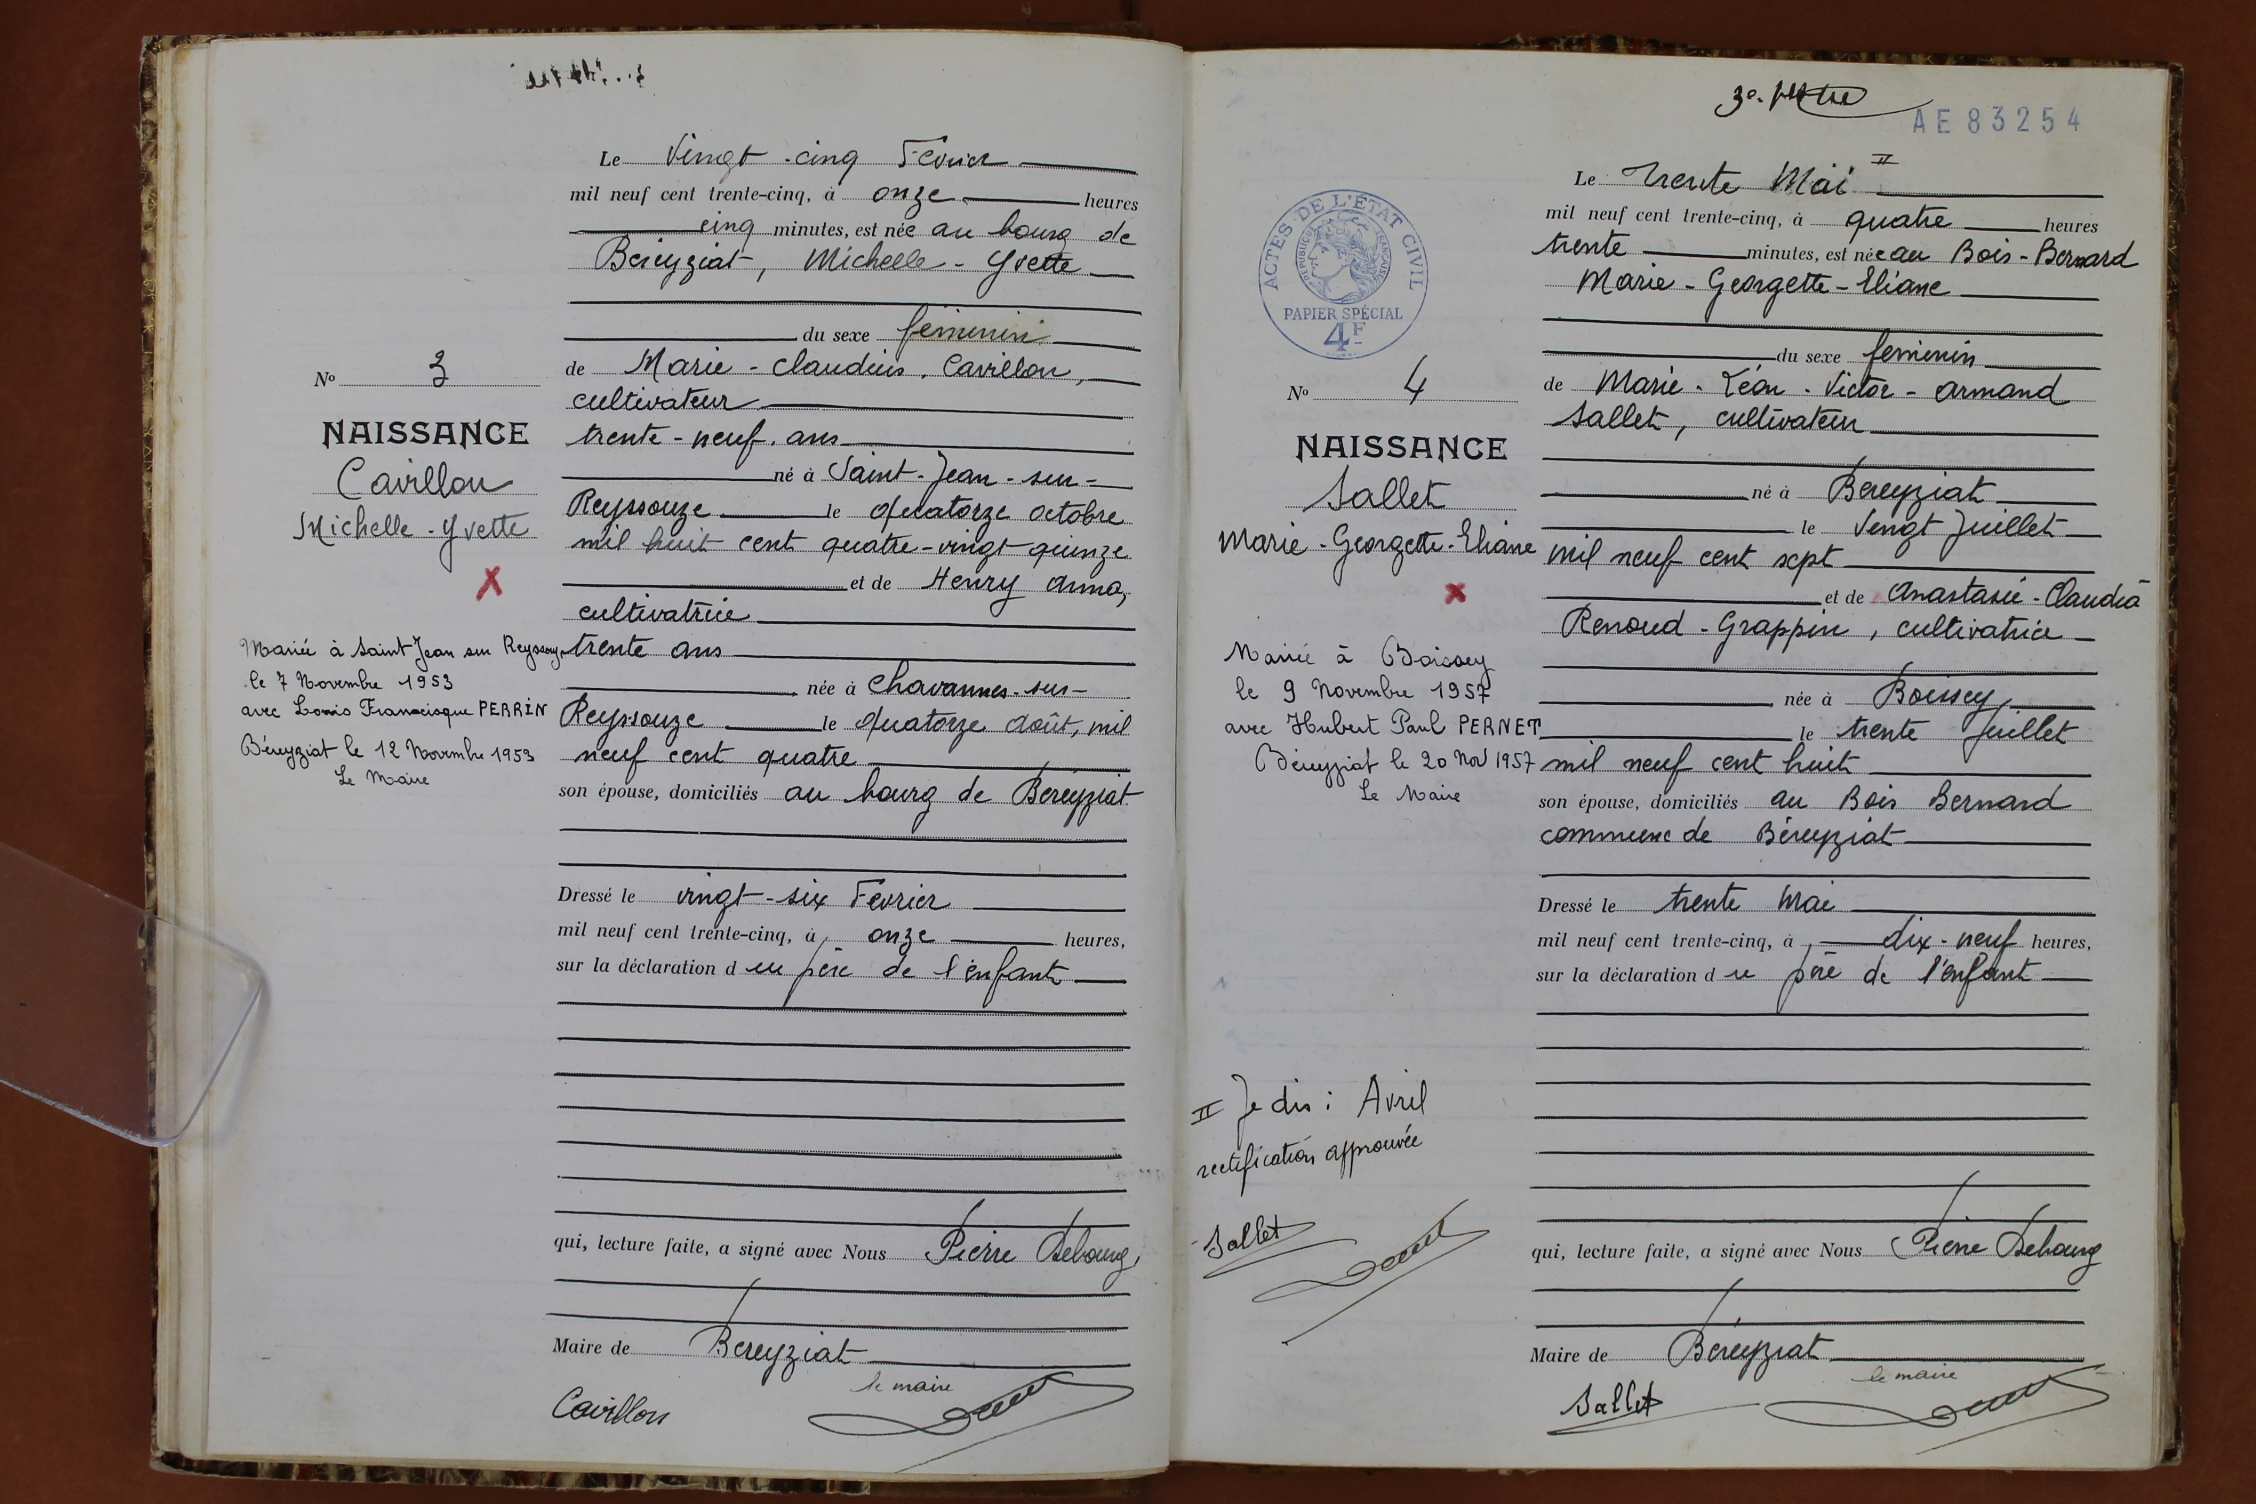 Le Vingt-cinq Février
mil neuf cent trente-cinq, à onze heures
cinq minutes, est née au bourg de
Béreyziat, Michelle-Yvette
du sexe féminin
No 3
de Marie-Claudius. Cavillon,
cultivateur
NAISSANCE
trente-neuf. ans
Cavillon
né à Saint-Jean-sur-
Michelle-Yvette
Reyssouze le quatorze octobre
mil huit cent quatre-vingt quinze
et de Henry Anna,
cultivatrice
Mariée à Saint Jean sur Reyssouze
le 7 Novembre 1953
avec Louis Francisque PERRIN
Béreyziat le 12 Novembre 1953
Le Maire
trente ans
née à Chavannes-sur-
Reyssouze le quatorze août, mil
neuf cent quatre
son épouse, domiciliés au bourg de Béreyziat
Dressé le vingt-six Février
mil neuf cent trente-cinq, à onze heures,
sur la déclaration du père de l'enfant
qui, lecture faite, a signé avec Nous Pierre Debourg,
Maire de Béreyziat
le maire
Cavillon
AE83254
Le Trente Mai II
mil neuf cent trente-cinq, à quatre heures
trente minutes, est née au Bois-Bernard
Marie-Georgette-Eliane
ACTES DE L'ETAT CIVIL
REPUBLIQUE FRANÇAISE
PAPIER SPÉCIAL
4F
du sexe féminin
No 4
de Marie-Léon-Victor-Armand
Sallet, cultivateur
NAISSANCE
Sallet
né à Béreyziat
le Vingt Juillet
Marie-Georgette-Eliane
mil neuf cent sept
et de Anastasie-Claudia
Renoud-Grappin, cultivatrice
Mariée à Boissey
le 9 Novembre 1957
avec Hubert Paul PERNET
Béreyziat le 20 Nov 1957
Le Maire
née à Boissey
le trente Juillet
mil neuf cent huit
son épouse, domiciliés au Bois Bernard
commune de Béreyziat
Dressé le trente Mai
mil neuf cent trente-cinq, à dix-neuf heures,
sur la déclaration du père de l'enfant
II Je dis : Avril
rectification approuvée
Sallet
qui, lecture faite, a signé avec Nous Pierre Debourg
Maire de Béreyziat
le maire
Sallet